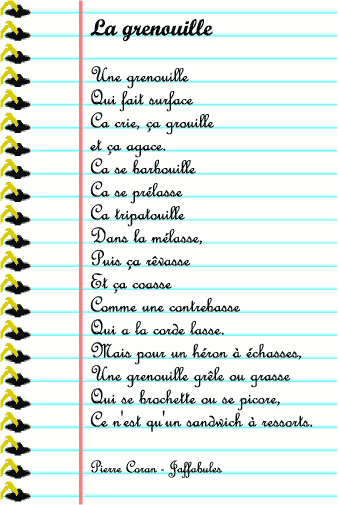 La grenouille
Une grenouille
Qui fait surface
Ca crie, ça grouille
et ça agace.
Ca se barbouille
Ca se prélasse
Ca tripatouille
Dans la mélasse,
Puis ça rêvasse
Et ça coasse
Comme une contrebasse
Qui a la corde lasse.
Mais pour un héron à échasses,
Une grenouille grêle ou grasse
Qui se brochette ou se picore,
Ce n'est qu'un sandwich à ressorts.
Pierre Coran - Jaffabules